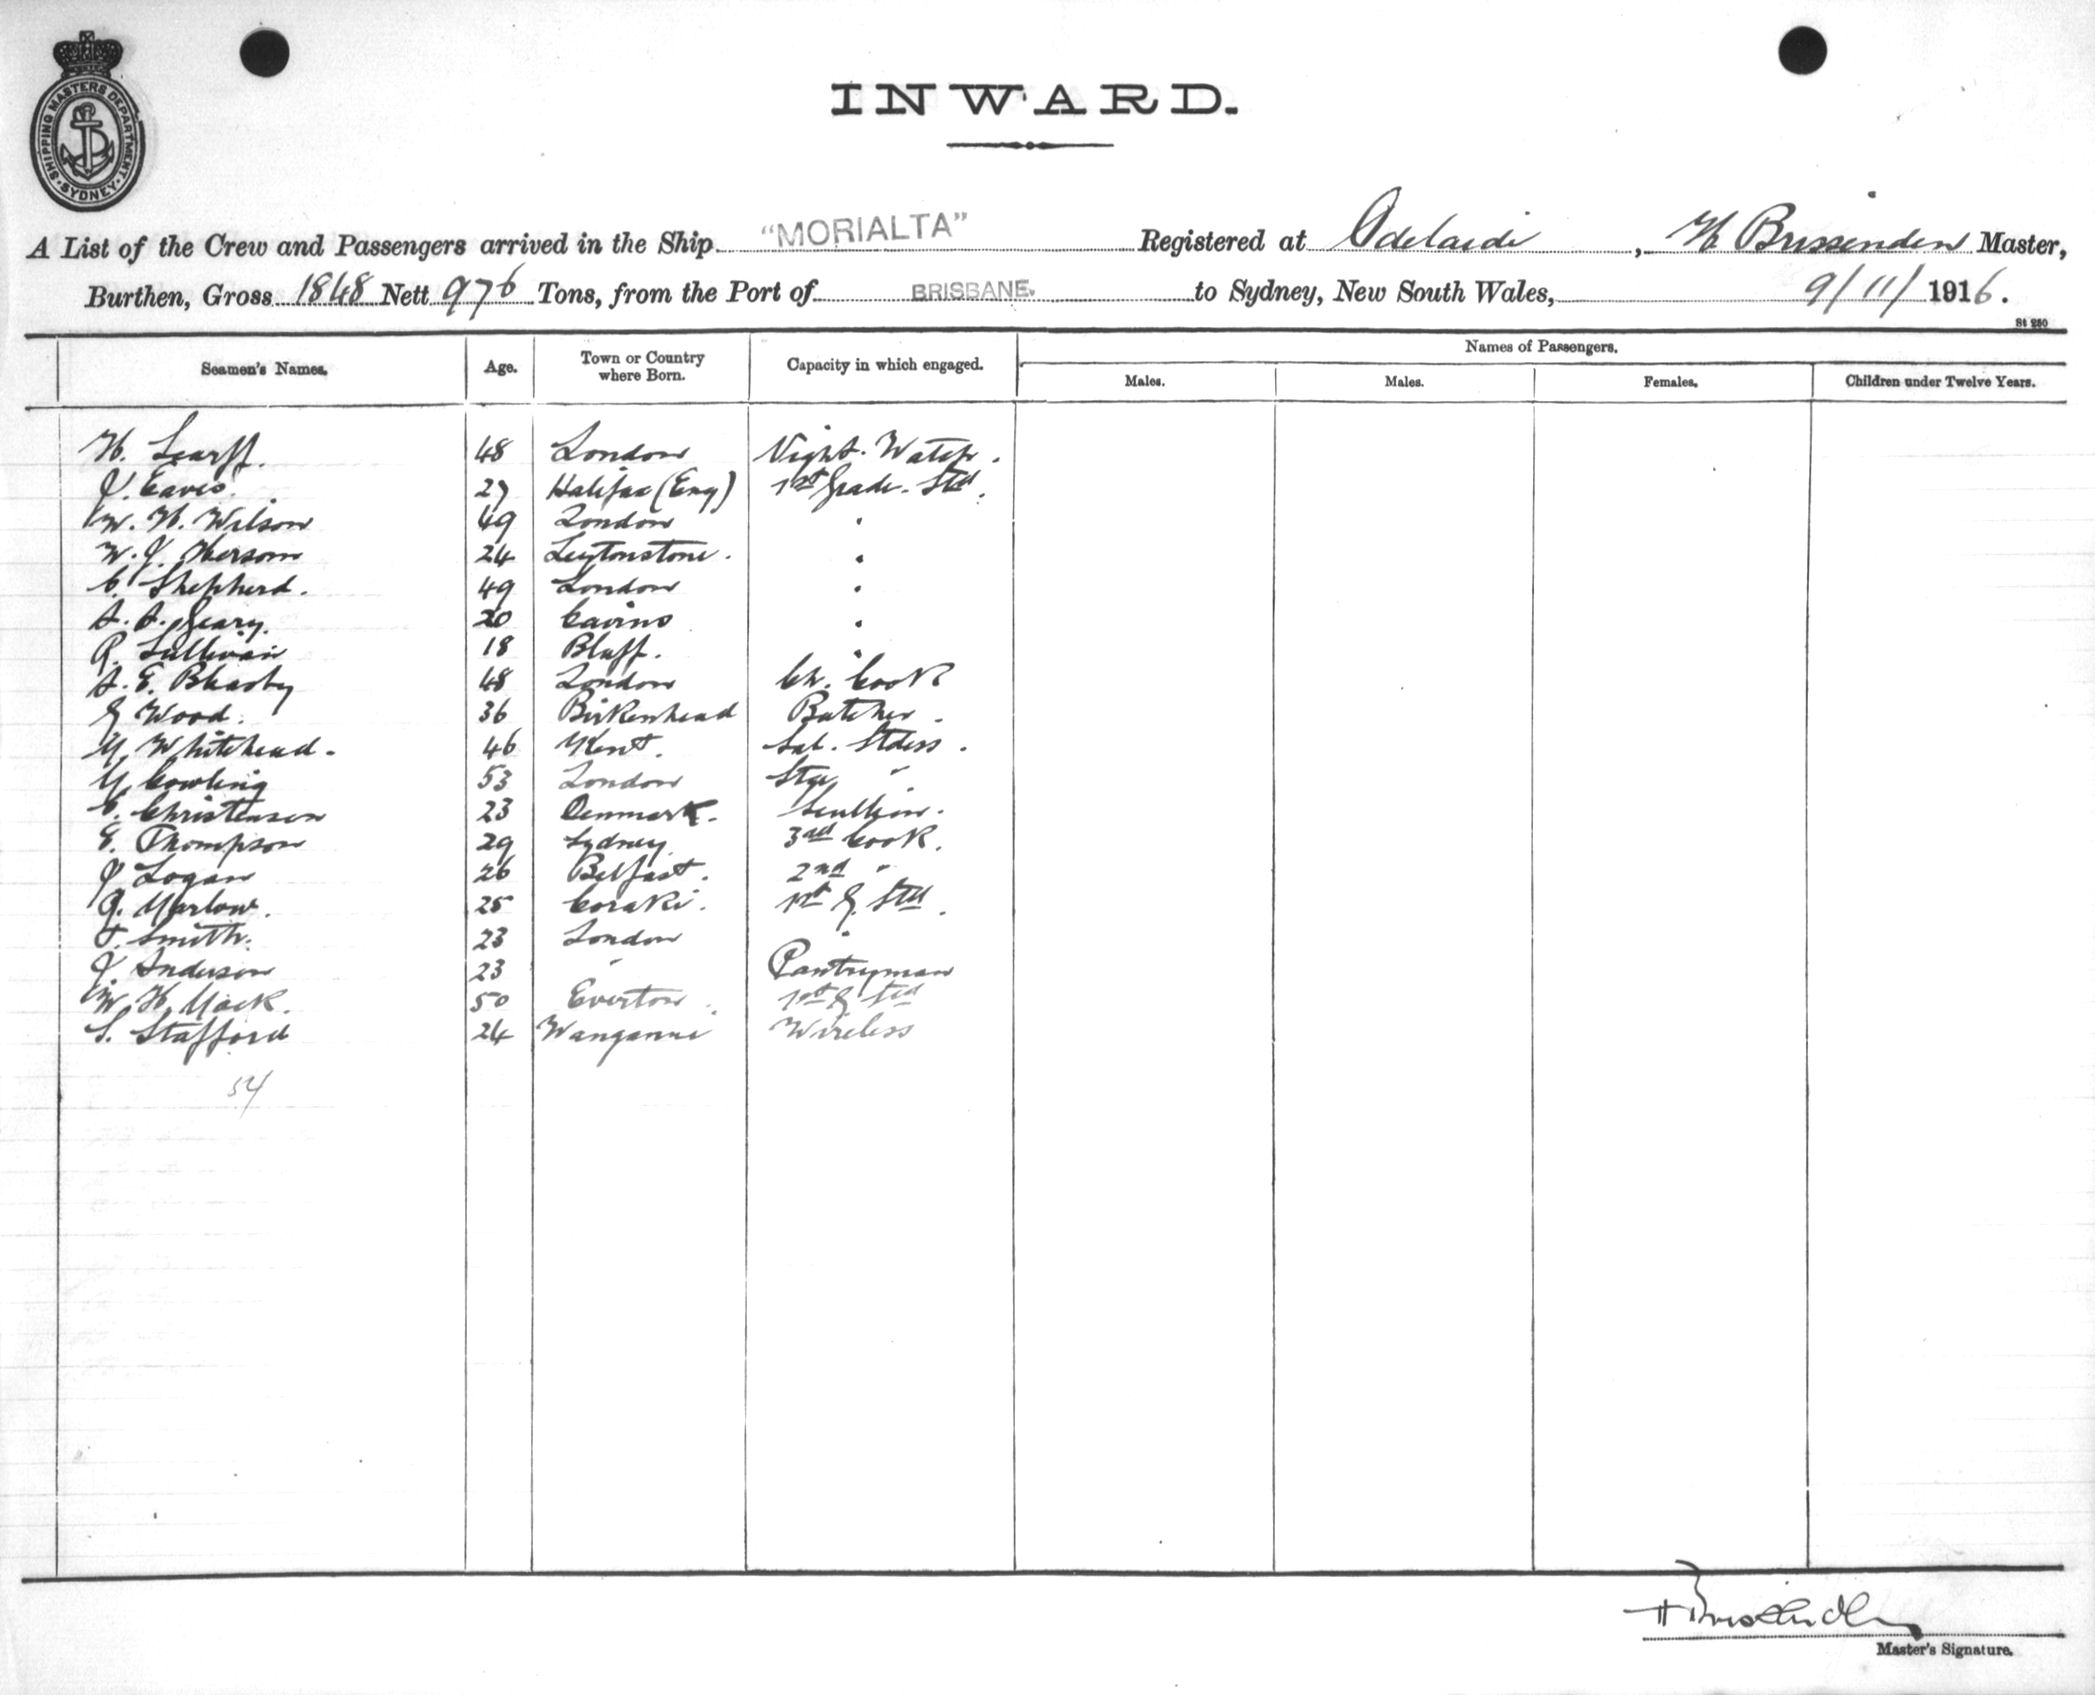 SHIPPING MASTERS DEPARTMENT
SYDNEY
INWARD.
A List of the Crew and Passengers arrived in the Ship "MORIALTA" Registered at Adelaide, H Brissenden Master,
Burthen, Gross 1848 Nett 976 Tons, from the Port of BRISBANE. to Sydney, New South Wales, 9/11/1916.
St 250
Seamen's Names. Age. Town or Country where Born. Capacity in which engaged. Names of Passengers.
Males. Males. Females. Children under Twelve Years.
H. Scarff. 48 London Night. Watch.
J. Eaves. 27 Halifax (Eng) 1st Grade. Std.
W. H. Wilson 49 London "
W. J. Hersom 24 Leytonstone. "
C. Shepherd. 49 London "
A. A. Geary. 20 Cairns "
R. Sullivan 18 Bluff. "
A. E. 48 London Ch. Cook
G Wood. 36 Birkenhead Butcher.
M. Whitehead. 46 Kent. Sal. Stdess.
M. Cowling 53 London Stge "
C. Christensen 23 Denmark. Scullion.
E. Thompson 29 Sydney. 3rd Cook.
J Logan 26 Belfast. 2nd "
G. Marlow. 25 Coraki. 1st G. Std.
F. Smith. 23 London "
J. Anderson 23 " Pantryman
W. H. Mack. 50 Everton. 1st G Std
S. Stafford 24 Wanganui Wireless
54
Master's Signature.